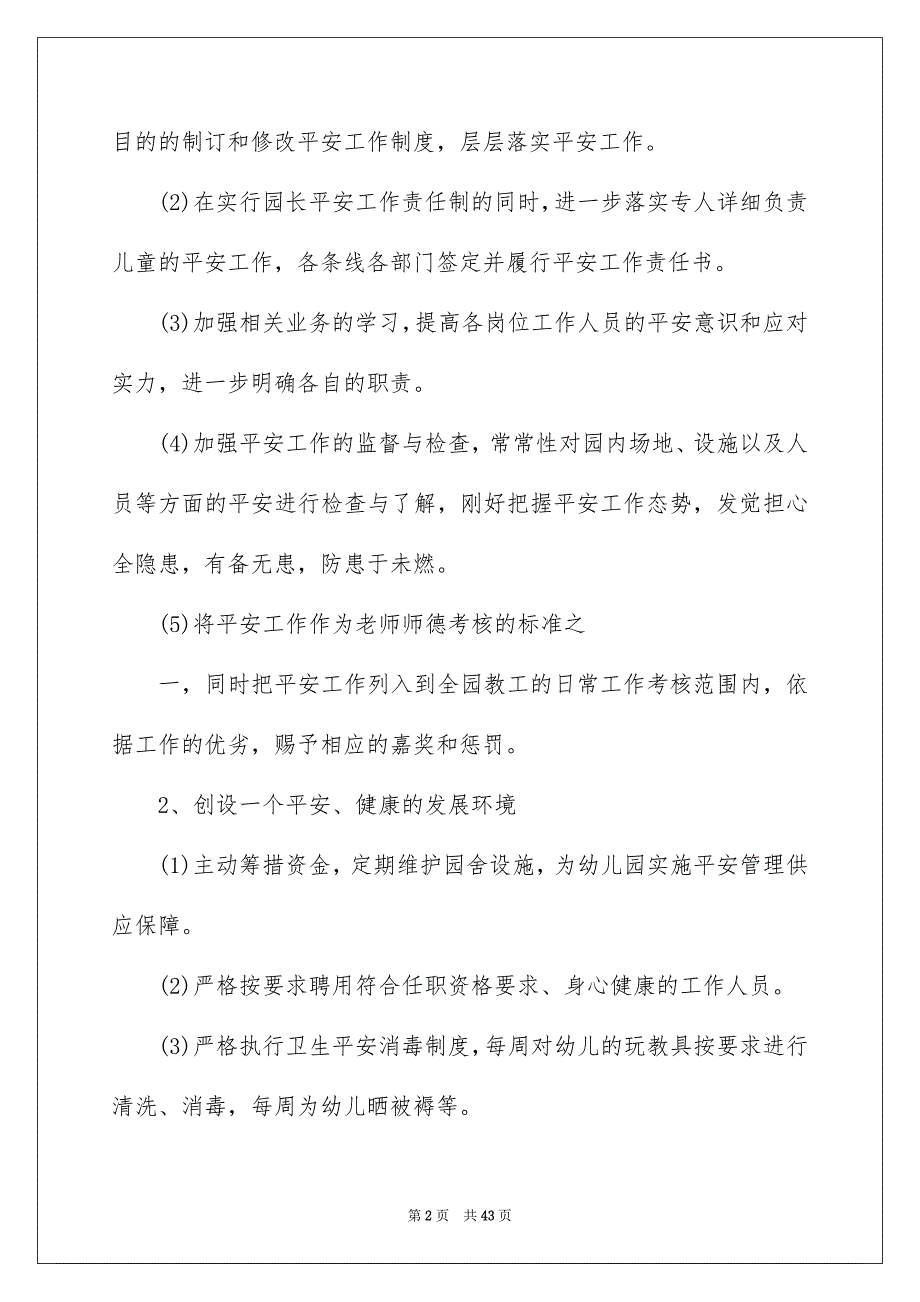 目的的制订和修改平安工作制度，层层落实平安工作。
(2)在实行园长平安工作责任制的同时,进一步落实专人详细负责
儿童的平安工作，各条线各部门签定并履行平安工作责任书。
(3)加强相关业务的学习,提高各岗位工作人员的平安意识和应对
实力，进一步明确各自的职责。
(4)加强平安工作的监督与检查，常常性对园内场地、设施以及人
员等方面的平安进行检查与了解，刚好把握平安工作态势，发觉担心
全隐患，有备无患，防患于未燃。
(5)将平安工作作为老师师德考核的标准之
一，同时把平安工作列入到全园教工的日常工作考核范围内，依
据工作的优劣，赐予相应的嘉奖和惩罚。
2、创设一个平安、健康的发展环境
(1)主动筹措资金，定期维护园舍设施，为幼儿园实施平安管理供
应保障。
(2)严格按要求聘用符合任职资格要求、身心健康的工作人员。
(3)严格执行卫生平安消毒制度,每周对幼儿的玩教具按要求进行
清洗、消毒，每周为幼儿晒被褥等。
第 2 页 共 43 页